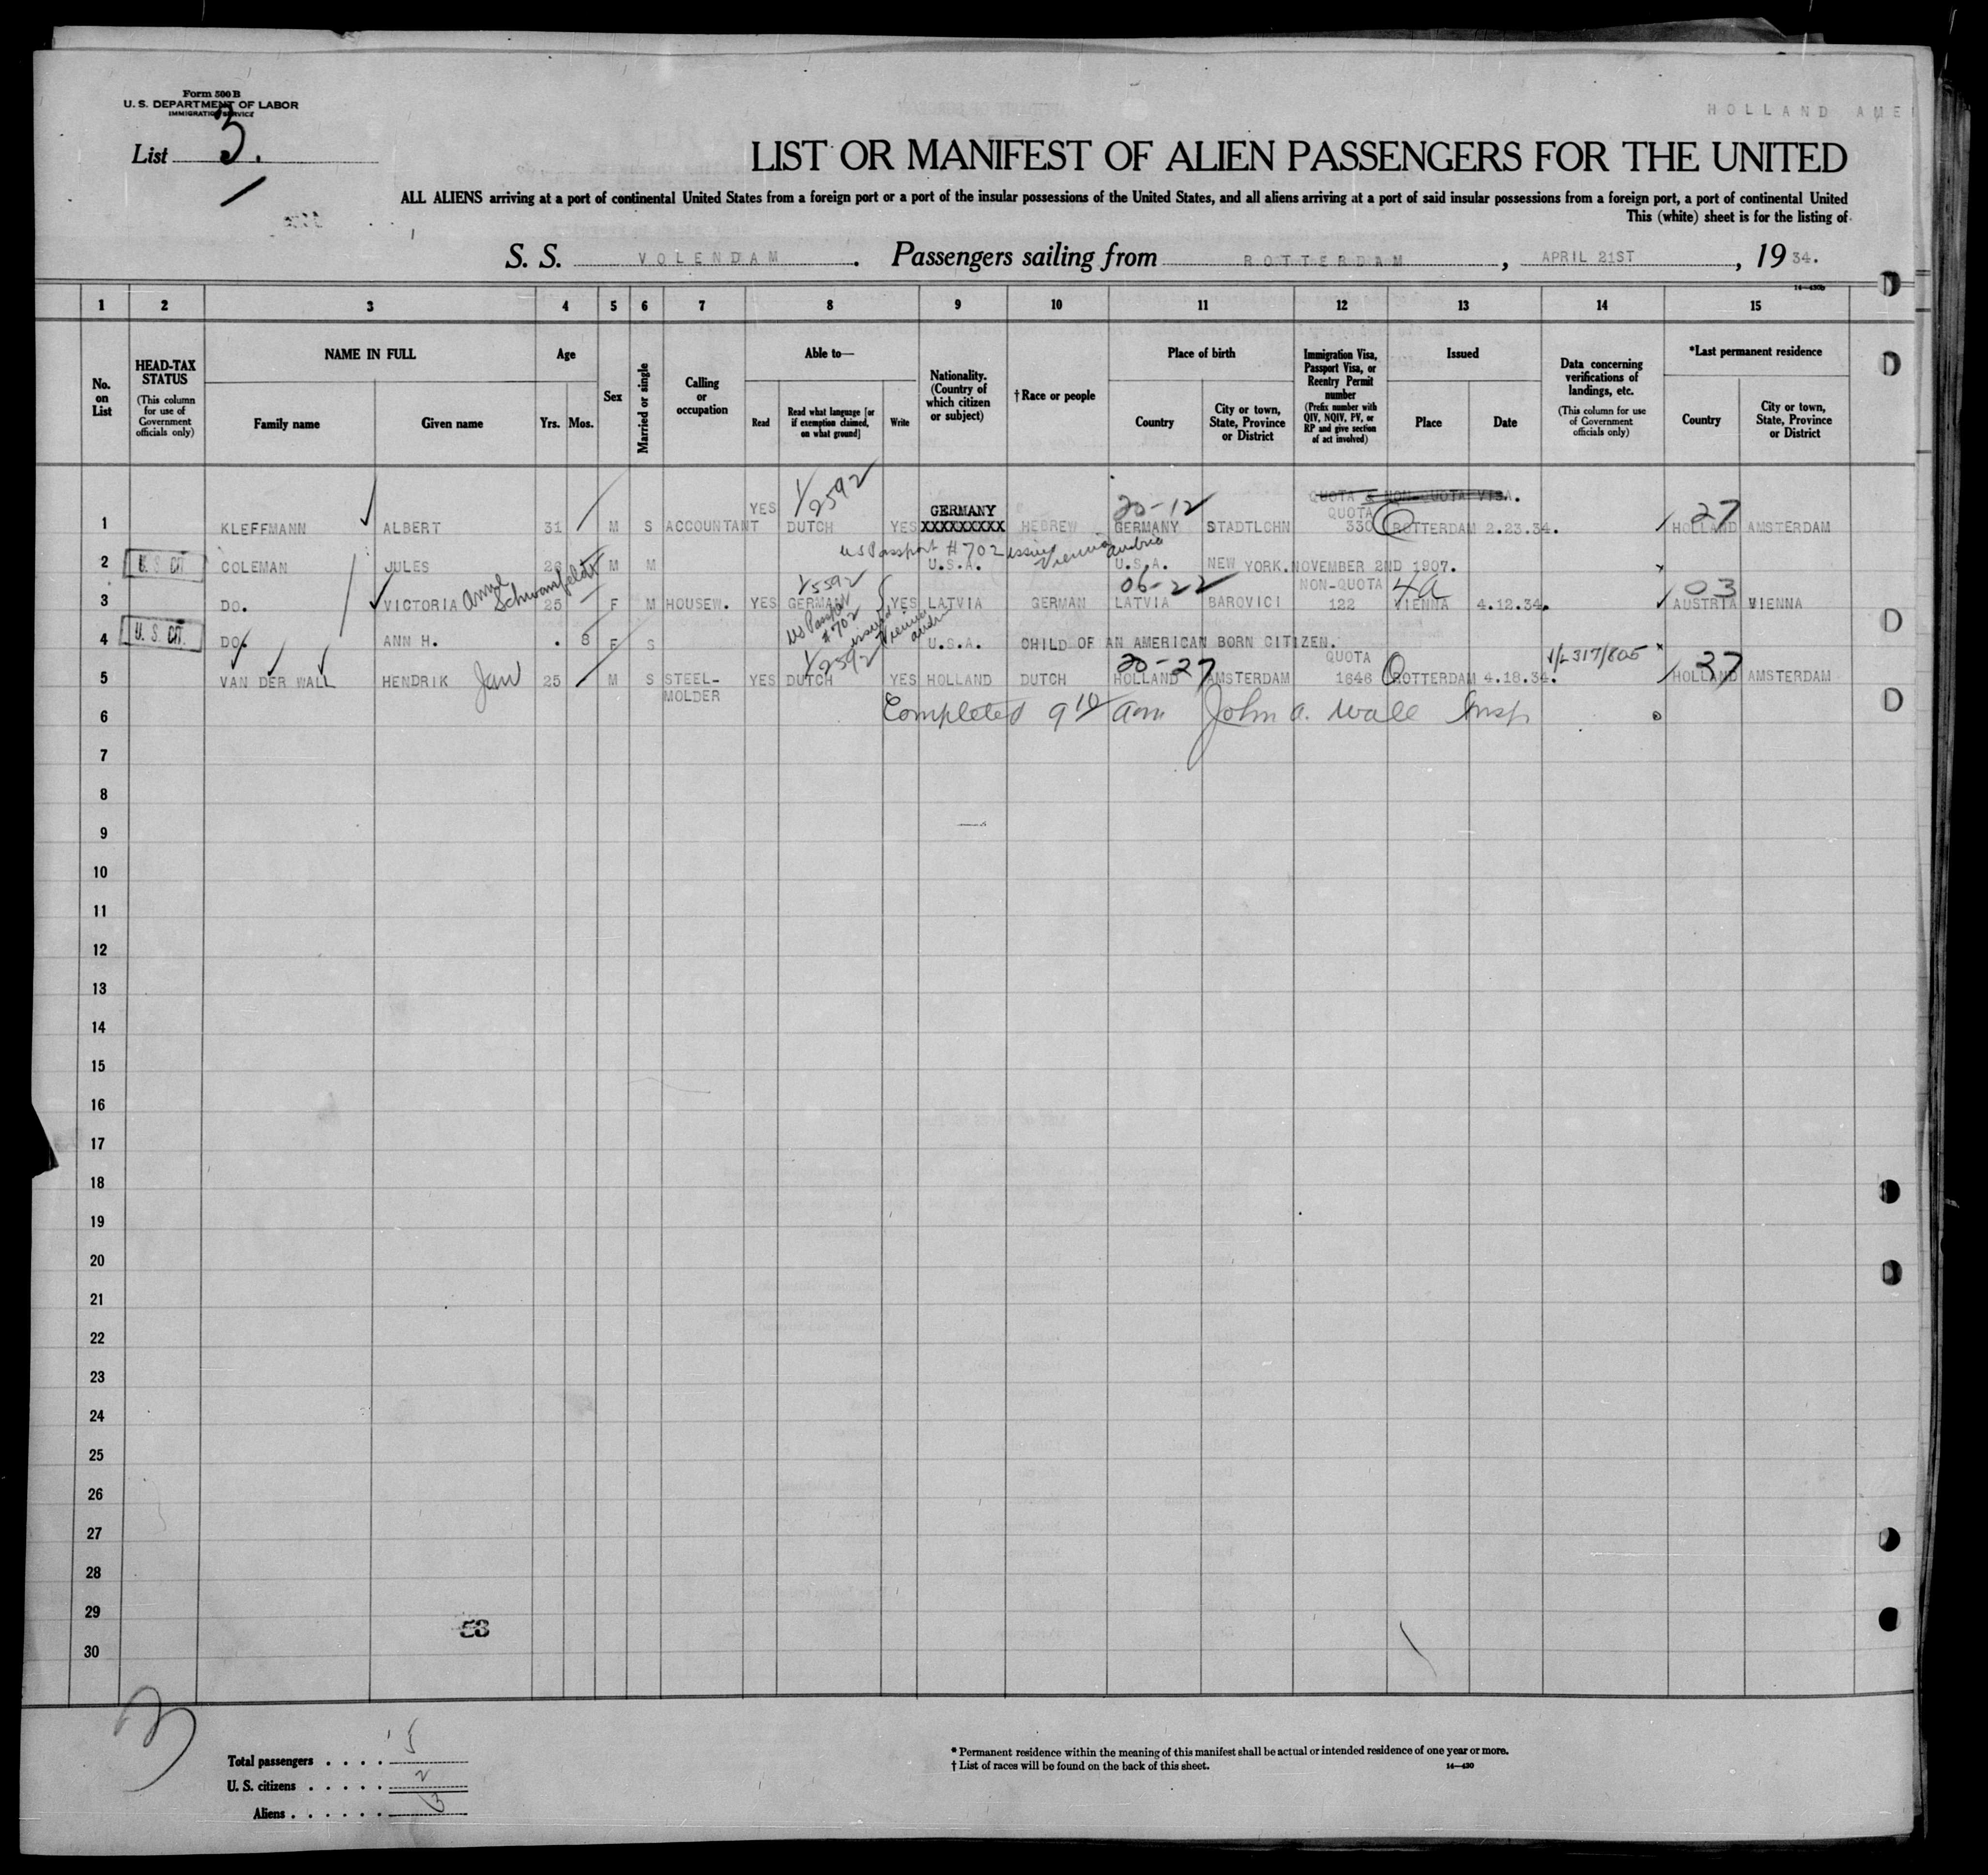 Form 500 B
U. S. DEPARTMENT OF LABOR
IMMIGRATION SERVICE
HOLLAND AME
List 3.
LIST OR MANIFEST OF ALIEN PASSENGERS FOR THE UNITED
ALL ALIENS arriving at a port of continental United States from a foreign port or a port of the insular possessions of the United States, and all aliens arriving at a port of said insular possessions from a foreign port, a port of continental United
This (white) sheet is for the listing of
S. S. VOLENDAM. Passengers sailing from ROTTERDAM, APRIL 21ST, 19 34.
14—430b
1 2 3 4 5 6 7 8 9 10 11 12 13 14 15
No. on List
HEAD-TAX STATUS (This column for use of Government officials only)
NAME IN FULL
Family name Given name
Age
Yrs. Mos.
Sex
Married or single
Calling or occupation
Able to—
Read
Read what language [or if exemption claimed, on what ground]
Write
Nationality. (Country of which citizen or subject)
†Race or people
Place of birth
Country
City or town, State, Province or District
Immigration Visa, Passport Visa, or Reentry Permit number (Prefix number with QIV, NQIV, PV, or RP and give section of act involved)
Issued
Place Date
Data concerning verifications of landings, etc. (This column for use of Government officials only)
*Last permanent residence
Country
City or town, State, Province or District
1/2592
QUOTA & NON-QUOTA VISA.
YES GERMANY 20-12 QUOTA 27
1 KLEFFMANN ALBERT 31 M S ACCOUNTANT DUTCH YES XXXXXXXXX HEBREW GERMANY STADTLOHN 330 ROTTERDAM 2.23.34. HOLLAND AMSTERDAM
US Passport #702 issued Vienna Austria
2 U. S. CIT. COLEMAN JULES 26 M M U.S.A. U.S.A. NEW YORK.NOVEMBER 2ND 1907.
Schwanfeldt 1/5592 06-22 NON-QUOTA 4a 03
3 DO. VICTORIA 25 F M HOUSEW. YES GERMAN YES LATVIA GERMAN LATVIA BAROVICI 122 VIENNA 4.12.34. AUSTRIA VIENNA
US Passport #702 issued Vienna Austria
4 U. S. CIT. DO. ANN H. . 8 F S U.S.A. CHILD OF AN AMERICAN BORN CITIZEN.
1/2592 20-27 QUOTA 27
5 VAN DER WALL HENDRIK Jan 25 M S STEEL- YES DUTCH YES HOLLAND DUTCH HOLLAND AMSTERDAM 1646 ROTTERDAM 4.18.34. HOLLAND AMSTERDAM
MOLDER
6 Completed 9 10 am John A. Wall Insp
7
8
9
10
11
12
13
14
15
16
17
18
19
20
21
22
23
24
25
26
27
28
29
58
30
3
Total passengers . . . . 5
U. S. citizens . . . . . 2
Aliens . . . . . . 3
* Permanent residence within the meaning of this manifest shall be actual or intended residence of one year or more.
† List of races will be found on the back of this sheet.
14—430